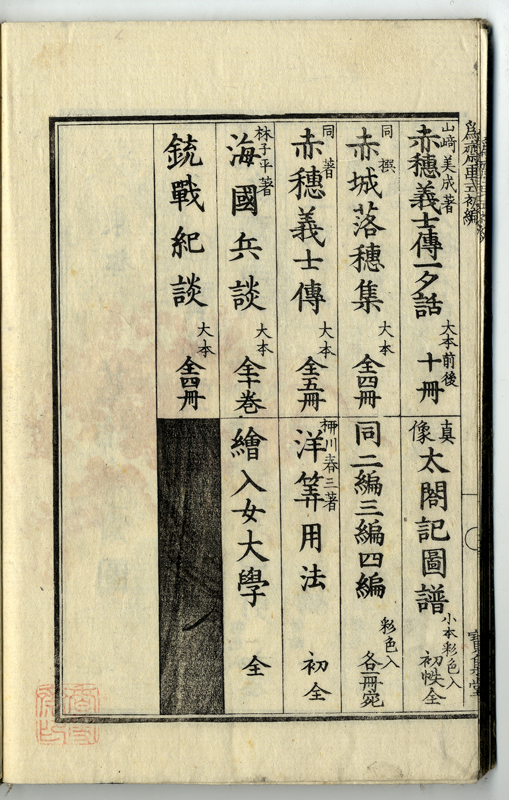 山﨑美成著
赤穗義士傳一夕話 大本前後 十冊
同撰
赤城落穗集 大本 全四冊
同著
赤穗義士傳 大本 全五冊
林子平著
海國兵談 大本 全十巻
銃戰紀談 大本 全四冊
真像 太閤記圖譜 小本彩色入 初帙全
同二編三編四編 彩色入 各一冊宛
栁川春三著
洋筭用法 初全
繪入女大學 全